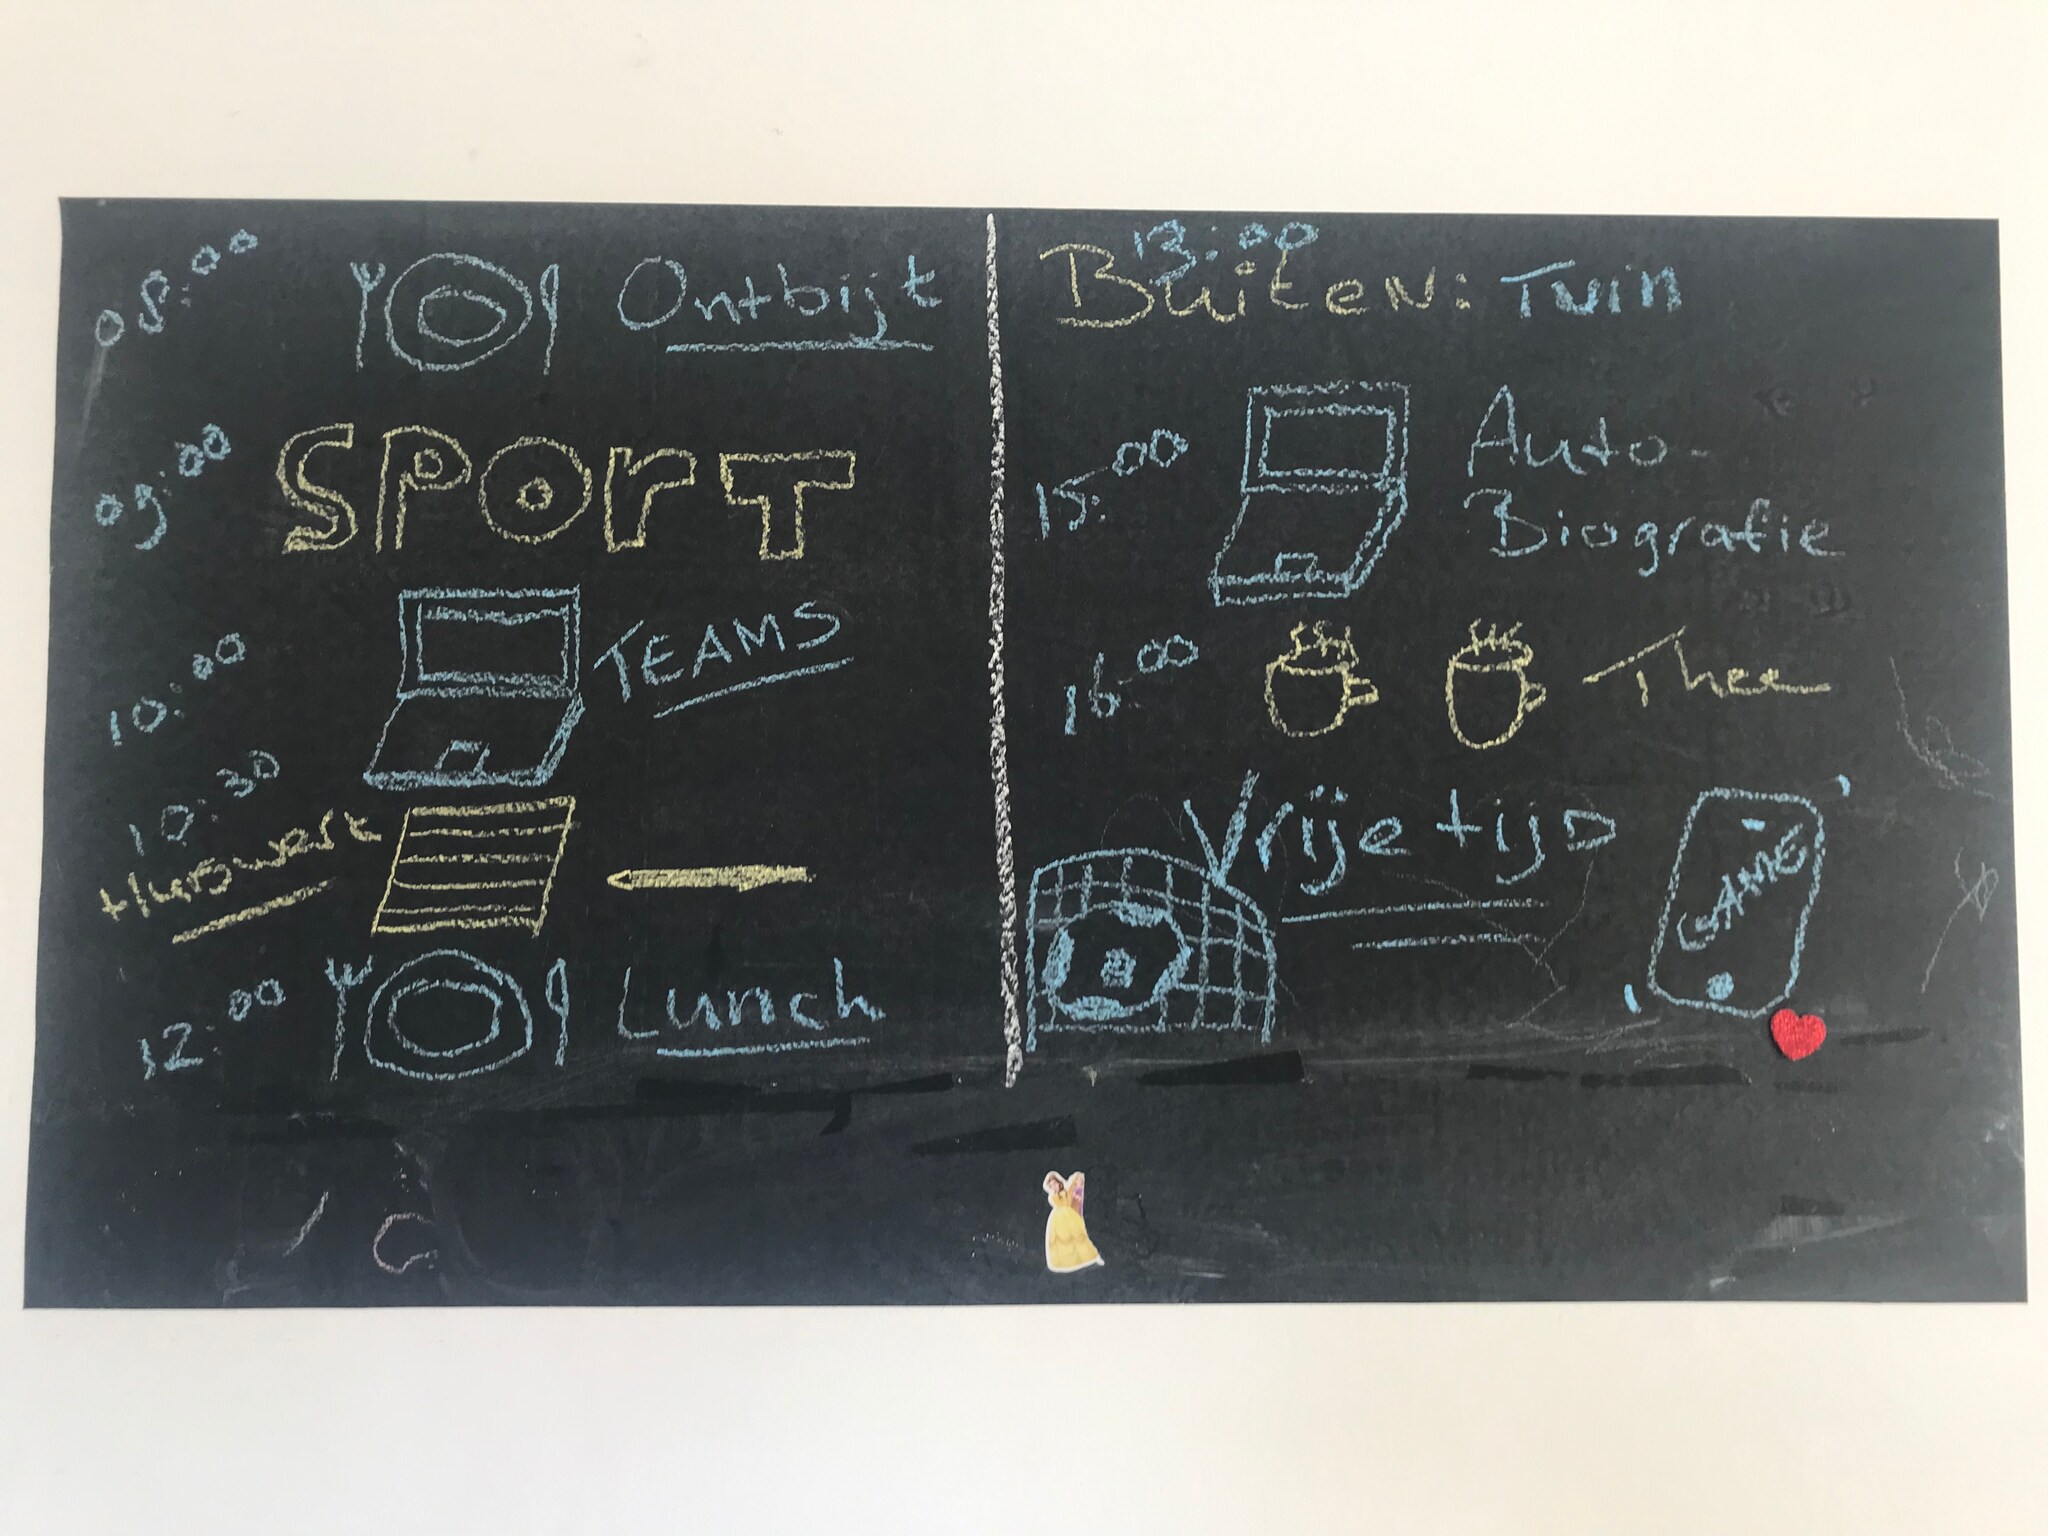 08:00 Ontbijt
09:00 SPORT
10:00 TEAMS
10:30
Huiswerk
12:00 Lunch
13:00
Buiten: Tuin
15:00 Auto-
Biografie
16:00 Thee
Vrije tijd
GAME